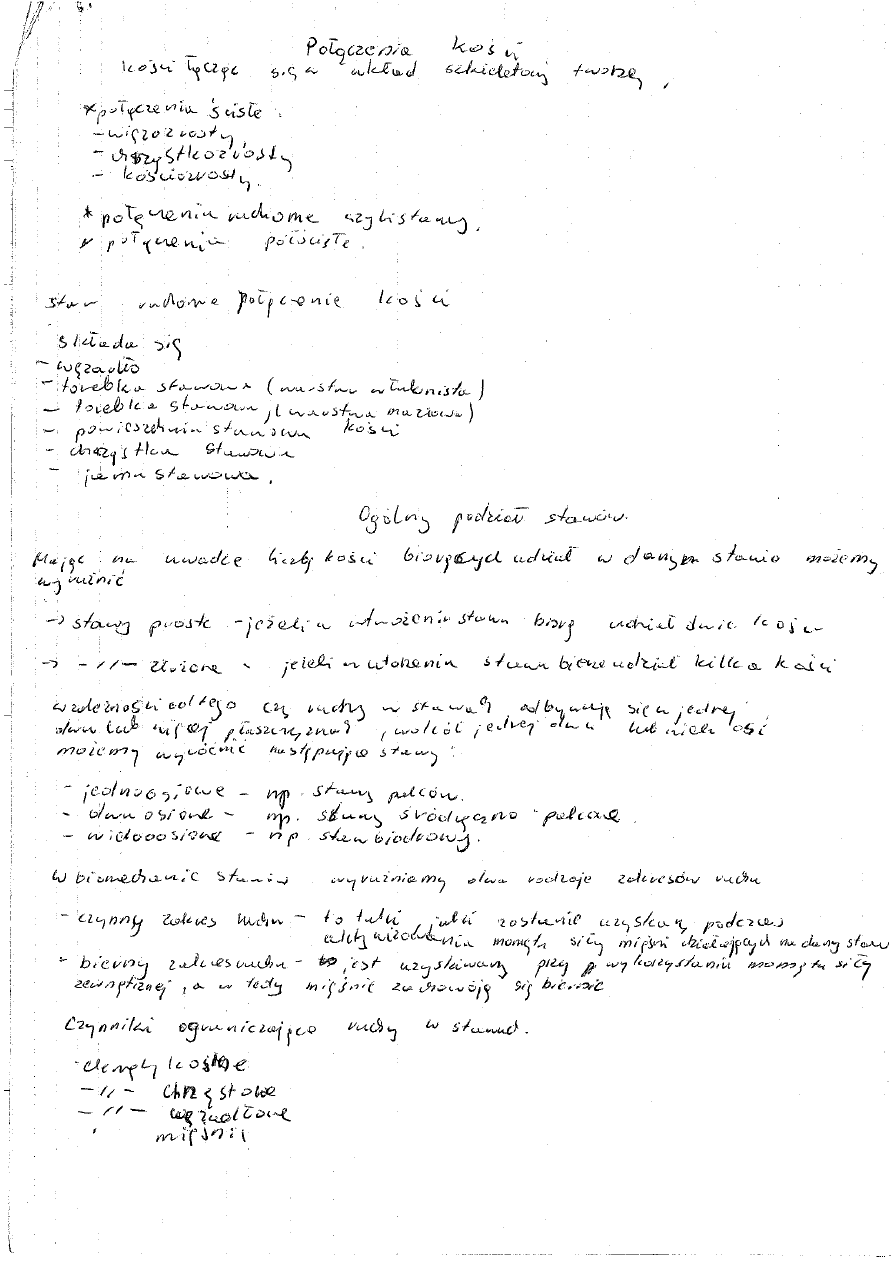 Połączenia kości
kości łącząc się w układ szkieletowy tworzą,
*połączenia ścisłe:
- więzozrosty
- chrząstkozrosty
- kościozrosty.
* połączenia ruchome czyli stawy,
* połączenia półścisłe.
staw ruchome połączenie kości
składa się
- więzadło
- torebka stawowa (warstw włuknista)
- torebka stawowa, (warstwa maziowa)
- powieszchnia stawowa kości
- chrząstka stawowa
- jama stawowa.
Ogólny podział stawów.
Mając na uwadze liczbę kości biorących udział w danym stawie możemy
wyrużnić
-> stawy proste - jeżeli w utworzeniu stawu biorą udział dwie kości
-> -//- złożone - jeżeli w utworzeniu stawu bierze udział kilka kości
w zależności od tego czy ruchy w stawach odbywają się w jednej
dwu lub więcej płaszczyznach, wokół jednej dwu lub wielu osi
możemy wyróżnić następujące stawy:
- jednoosiowe - np. stawy palców.
- dwu osiowe - np. stawy śródręczno - palcowe.
- wieloosiowe - np staw biodrowy.
W biomechanice stawów wyrużniamy dwa rodzaje zakresów ruchu
- czynny zakres ruchu - to taki jaki zostanie uzyskany podczas
momętu siły mięśni działających na dany staw
- bierny zakres ruchu - jest uzyskiwany przy wykorzystaniu momętu siły
zewnętrznej, a w tedy mięśnie zachowują się biernie
Czynniki ograniczające ruchy w stawach.
- kostne
-//- chrzęstowe
-//- więzadłowe
mięśnie